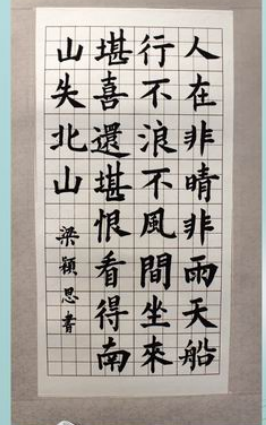 人在非晴非雨天船
行不浪不風間坐來
堪喜還堪恨看得南
山失北山
梁穎思書